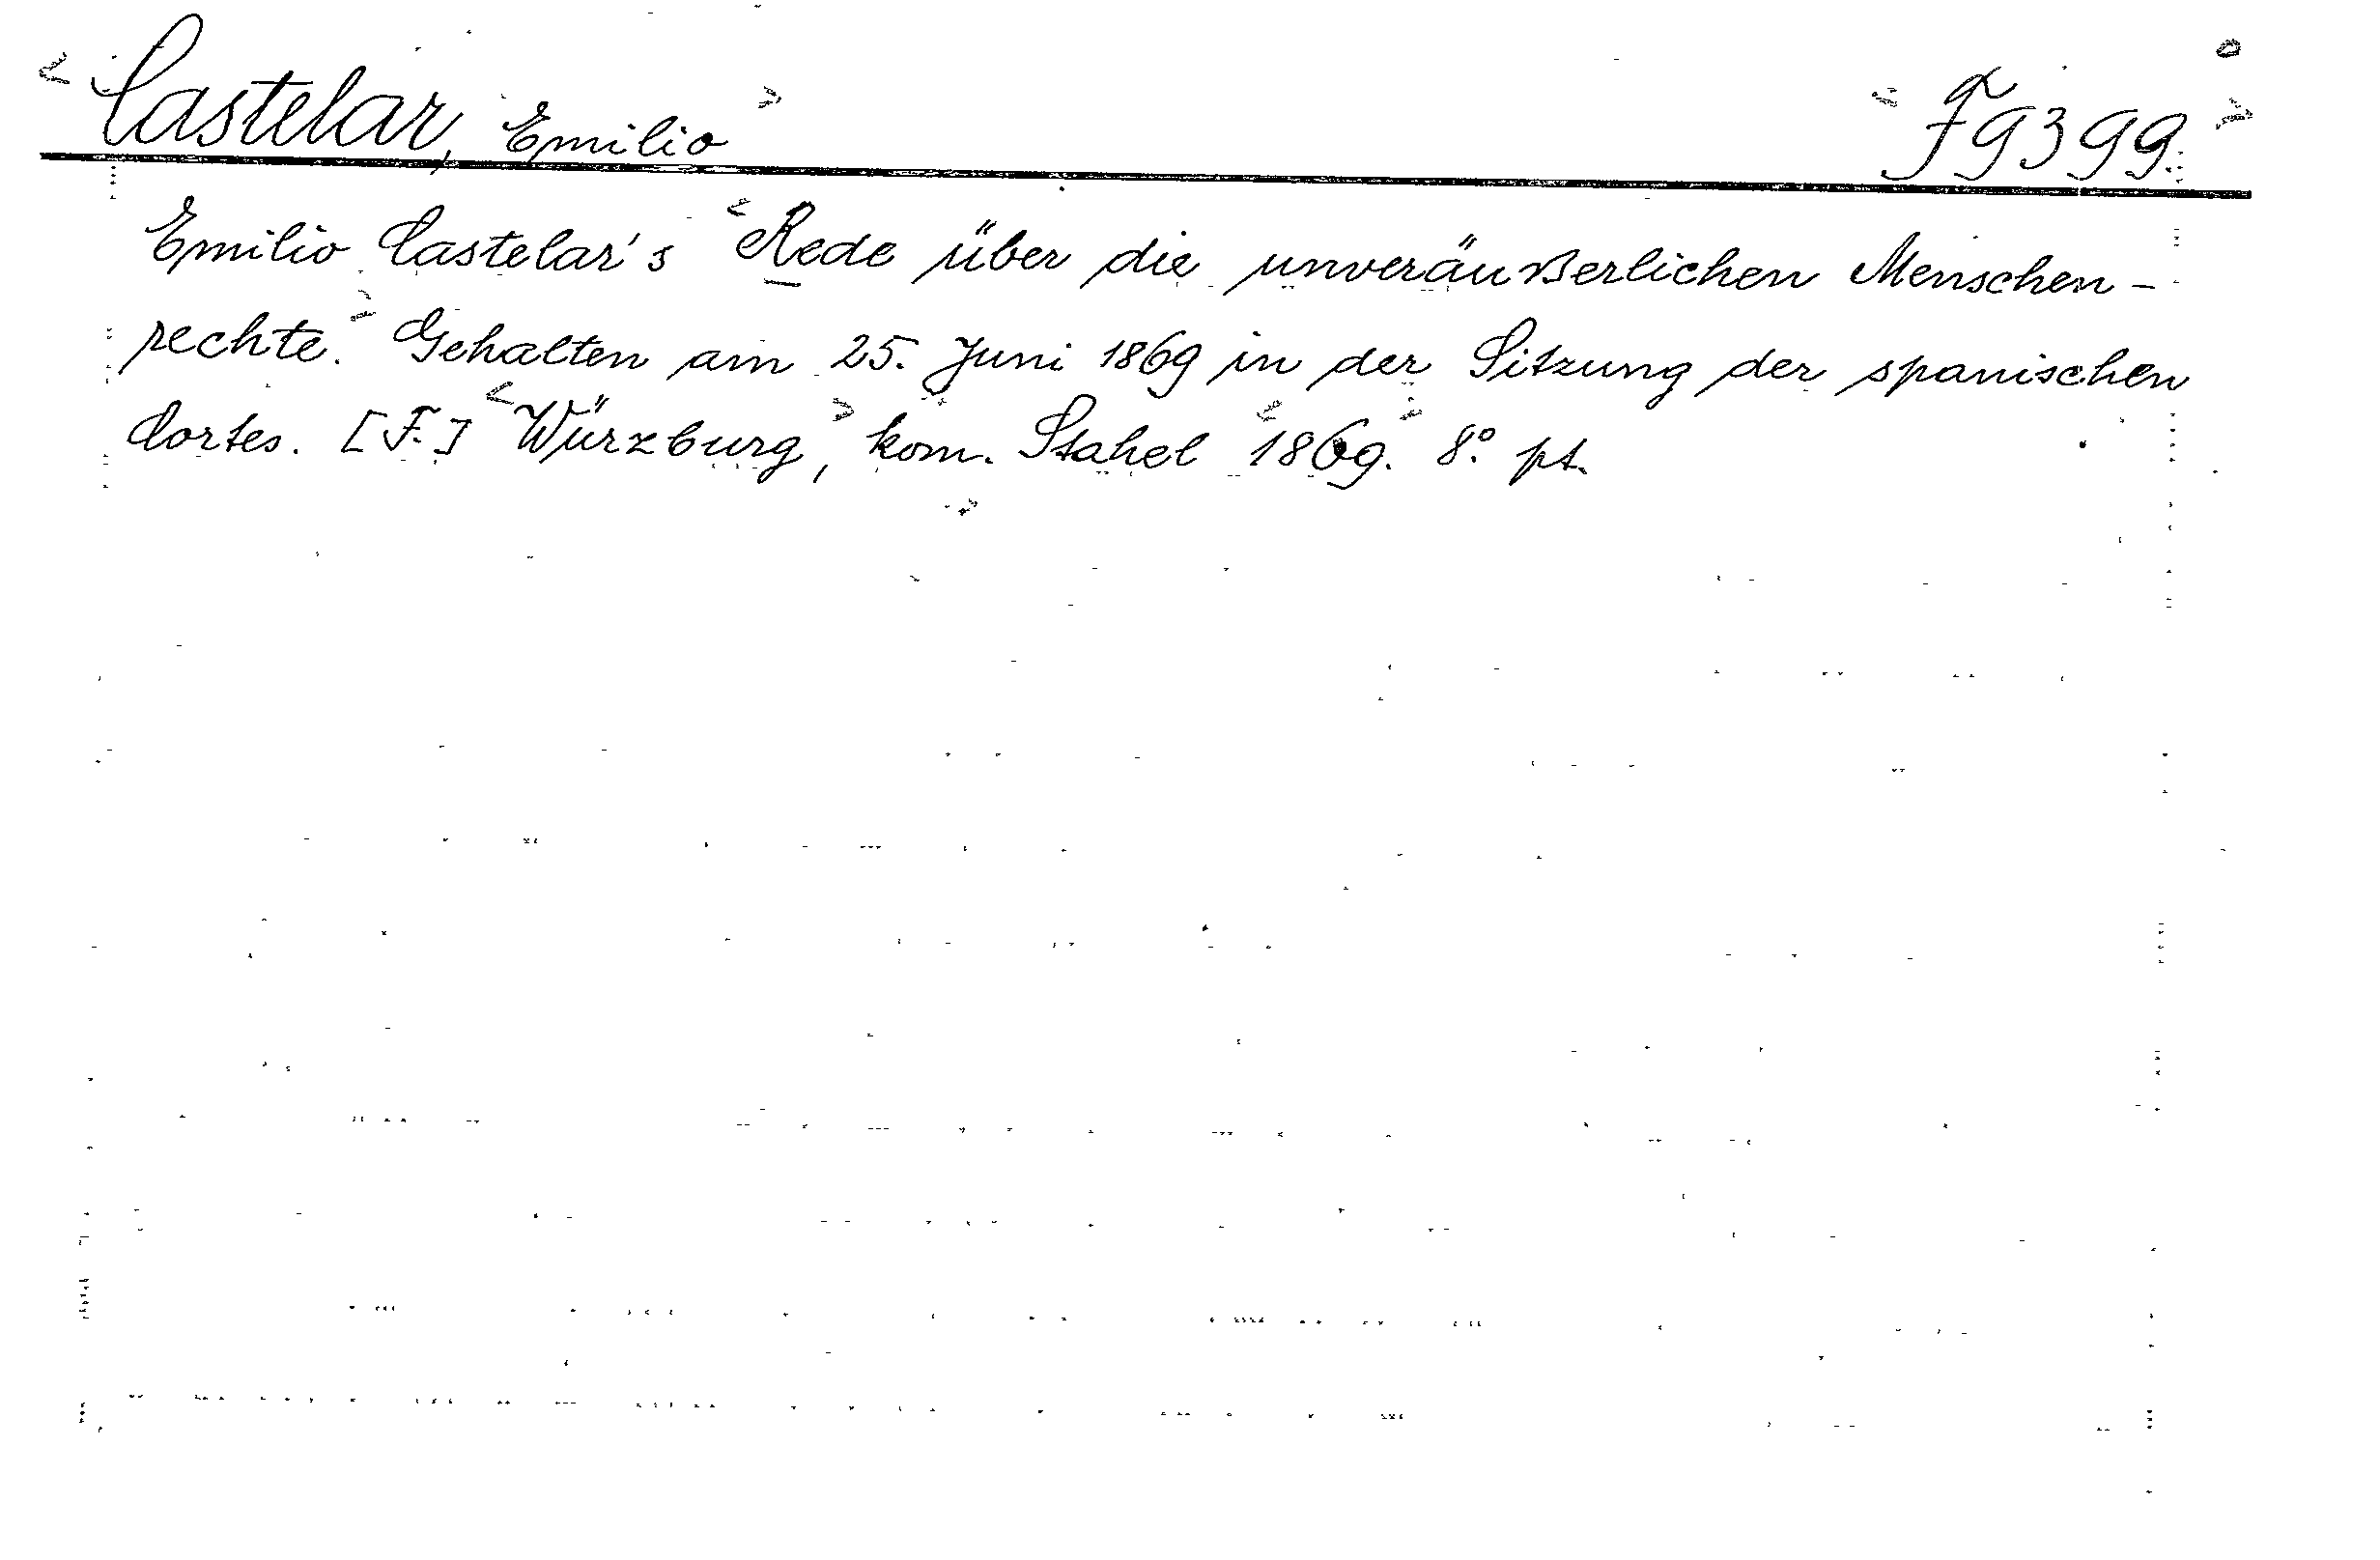 <Castelar, Emilio> <F9399.> 0
Emilio Castelar's <Rede über die unveräußerlichen Menschen-
rechte.> Gehalten am 25. Juni 1869 in der Sitzung der spanischen
Cortes. [F.] <Würzburg>, kom. Stahel <1869.> 8.° pt.